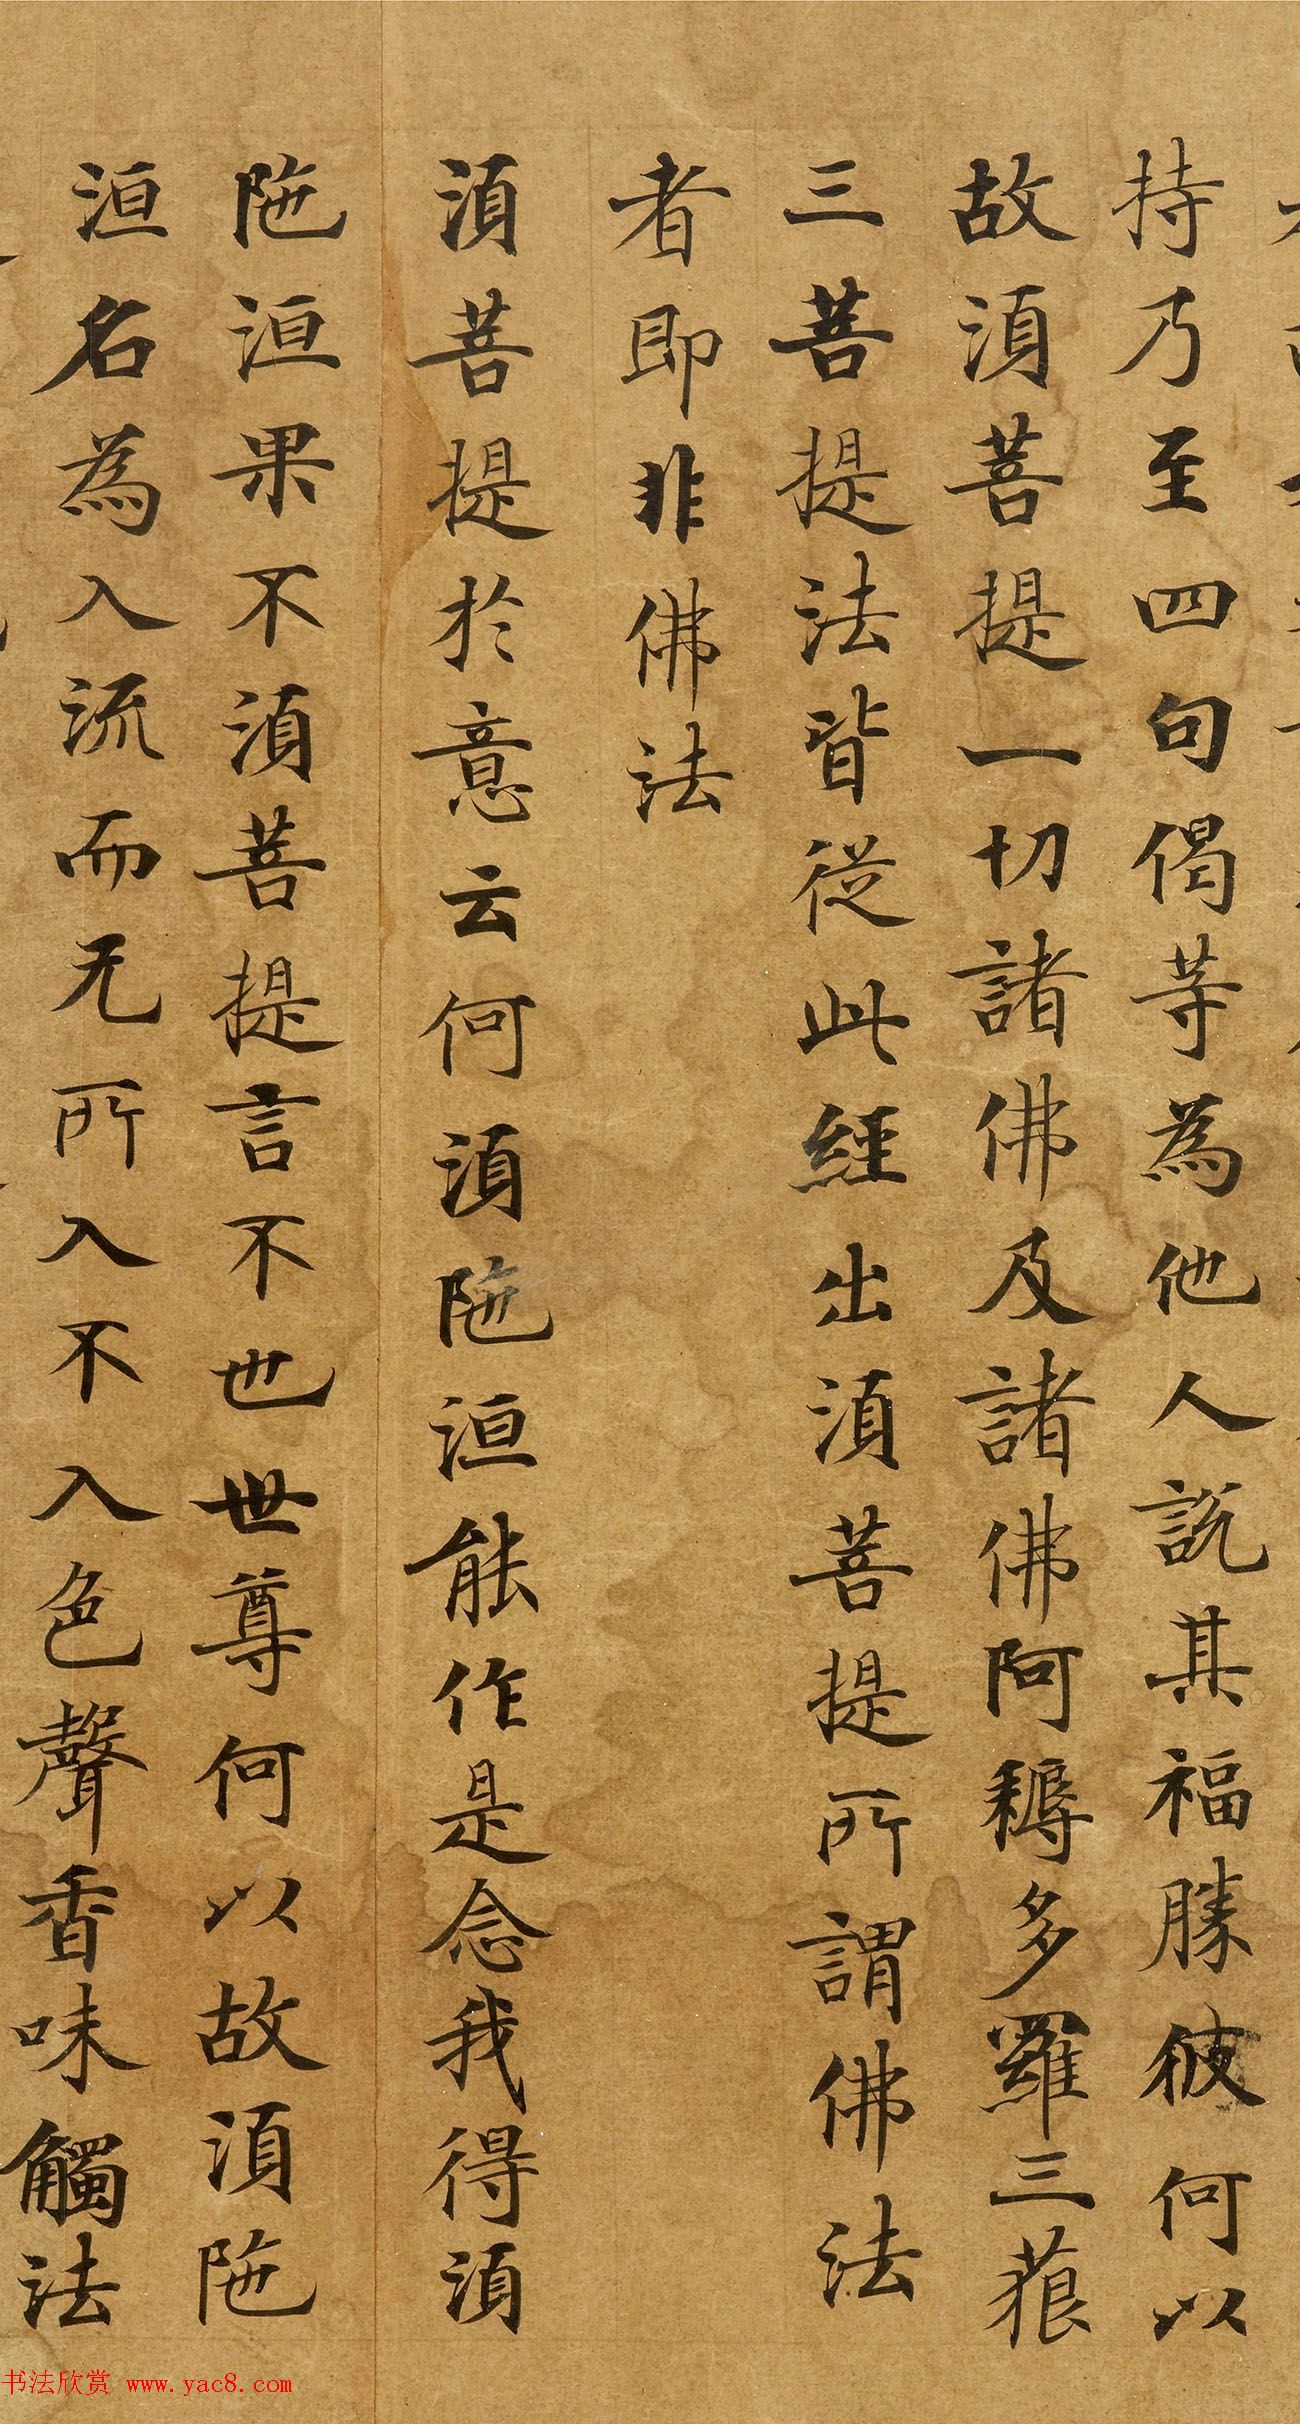 持乃至四句偈等為他人說其福勝彼何以
故湏菩提一切諸佛及諸佛阿耨多羅三藐
三菩提法皆從此經出湏菩提所謂佛法
者即非佛法
湏菩提於意云何湏陁洹能作是念我得湏
陁洹果不湏菩提言不也世尊何以故湏陁
洹名為入流而无所入不入色聲香味觸法
书法欣赏 www.yac8.com